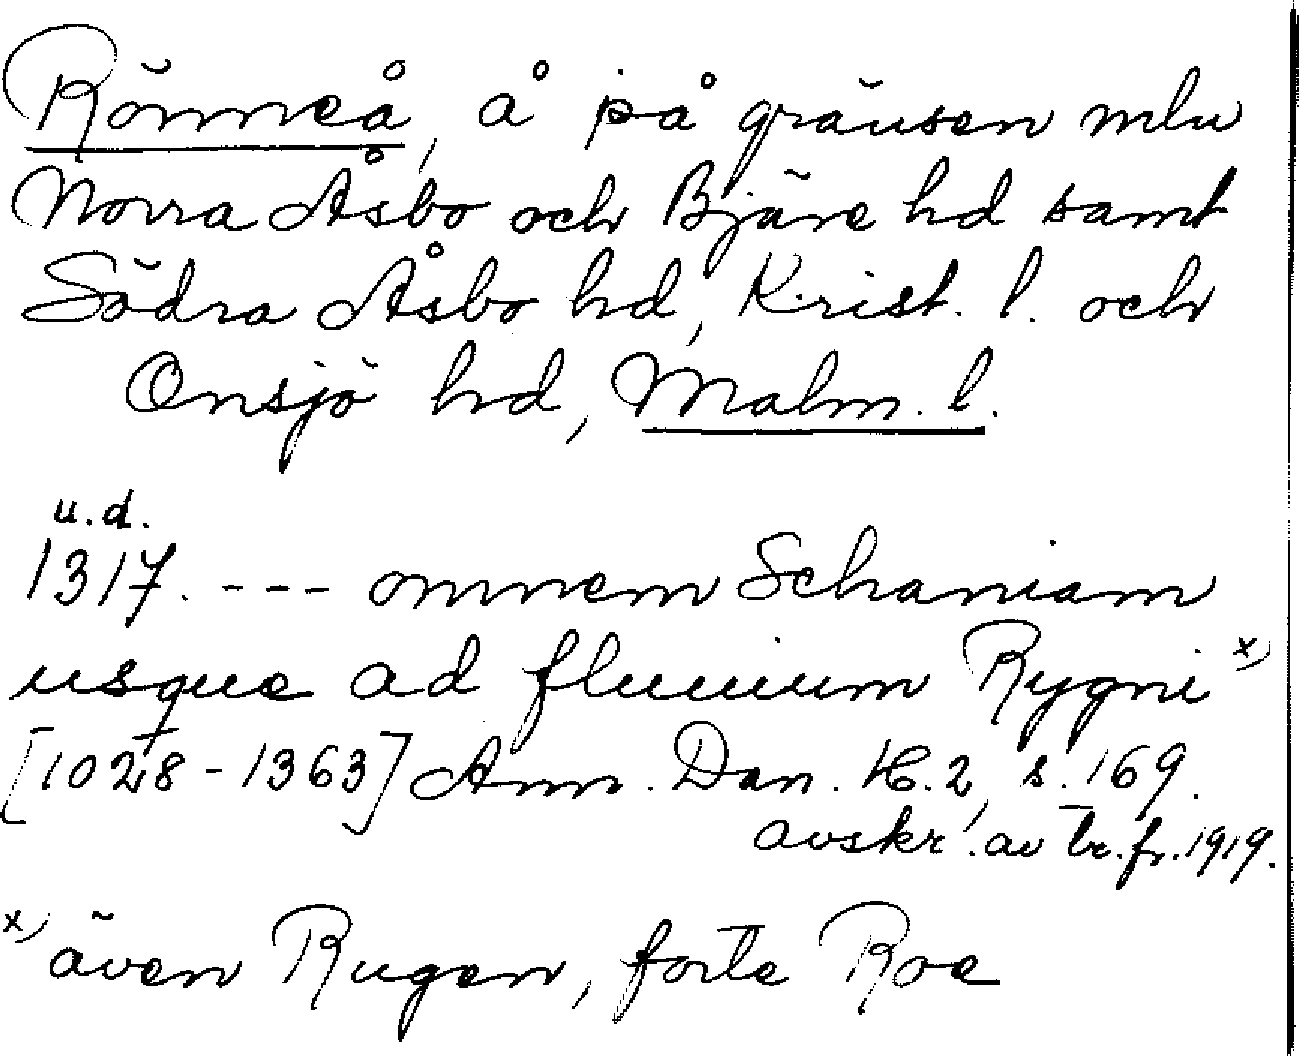 Rönneå, å på gränsen mln
Norra Åsbo och Bjäre hd samt
Södra Åsbo hd, Krist. l. och
Onsjö hd, Malm. l.
u.d.
1317. --- omnem Schaniam
usque ad fluuium Rygni x)
[1028-1363] Ann. Dan. H.2, s. 169.
avskr. av tr. fr. 1919.
x) även Rugen, forte Roe